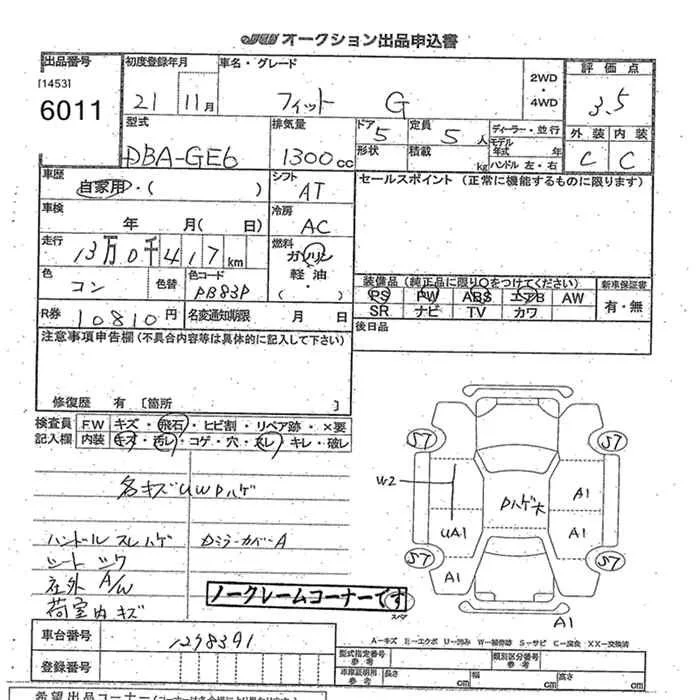 JU オークション出品申込書
出品番号 初度登録年月 車名・グレード 2WD・4WD 評価点
[1453]
6011 21 11月 フィット G 3.5
型式 排気量 ドア 5 定員 5 人 ディーラー・並行 外装 内装
DBA-GE6 1300cc 形状 積載 kg モデル年式 年 ハンドル 左・右 C C
車歴 自家用・( ) シフト AT セールスポイント (正常に機能するものに限ります)
車検 年 月( 日) 冷房 AC
走行 13万0千417km 燃料 ガソリン 軽油 ・( )
色 コン 色替 色コード PB83P 装備品 (純正品に限り○をつけてください) 新車保証書
PS PW ABS エアB AW 有・無
SR ナビ TV カワ
R券 10810円 名変通知期限 月 日 後日品
注意事項申告欄 (不具合内容等は具体的に記入して下さい)
修復歴 有 [箇所 ]
検査員 FW キズ・飛石・ヒビ割・リペア跡・×要
記入欄 内装 キズ・汚レ・コゲ・穴・スレ・キレ・破レ
S7 S7
各キズUWDハゲ W2 Dハゲ大 A1
UA1 A1
ハンドルスレハゲ Dミラーカバー A
シート シワ S7 S7
社外 A/W A1
荷室内キズ ノークレームコーナーです
スペア A1
車台番号 1298391 A-キズ E-エクボ U-凹み W-補修跡 S-サビ C-腐食 XX-交換済
型式指定番号 参考 類別区分番号 参考
登録番号 車庫証明用 参考 長さ cm 幅 cm 高さ cm
希望出品コーナー